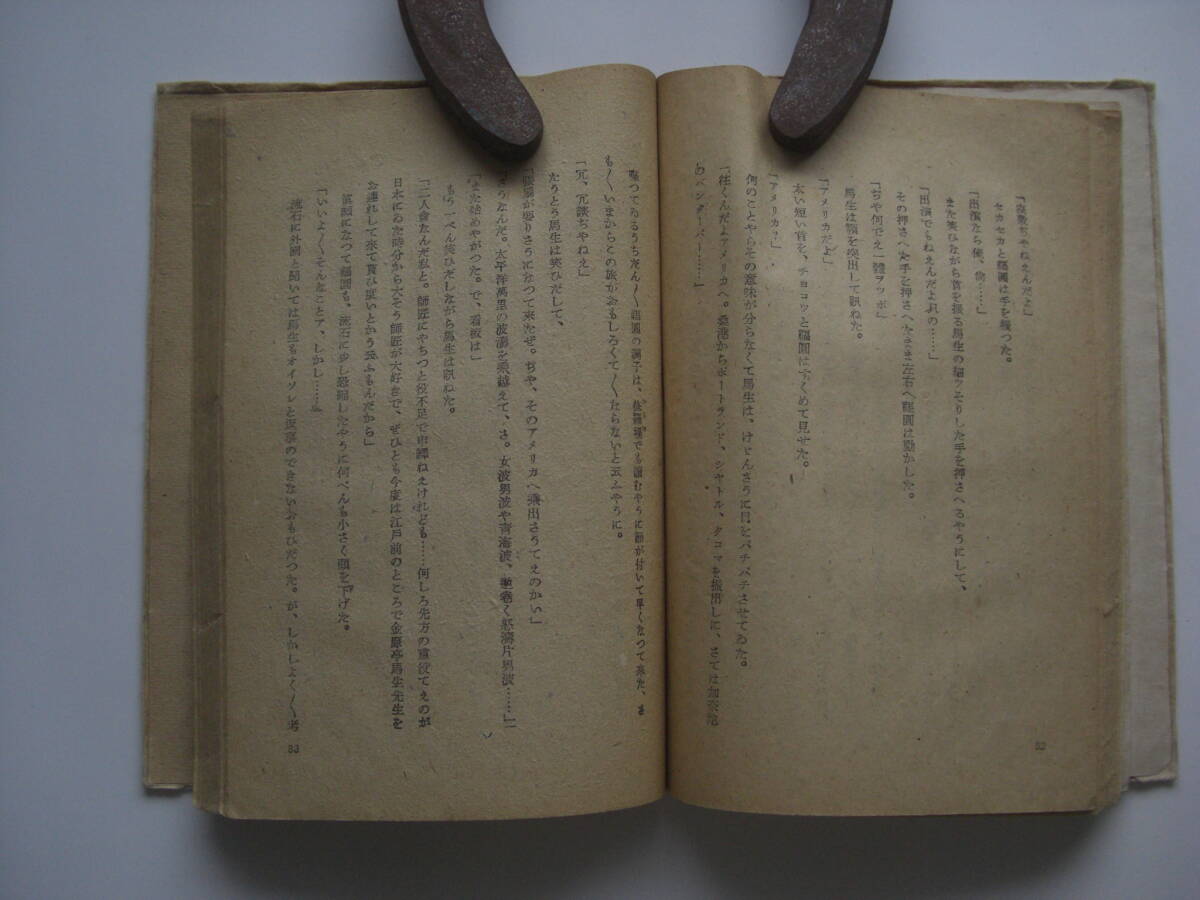 ちやねえんだよ」
セカセカと圓は手を振つた。
「出演なら俺、俺……」
また笑ひながら首を振る馬生の ッそりした手を押さへるやうにして、
「出演でもねえんだよ の……」
その押さへた手を押さへたまま左右へ 圓は動かした。
「ぢや何でえ一體ヲッポ」
馬生は顎を突出して訊ねた。
「アメリカだよ」
太い短い首を、チョコッと 圓はすくめて見せた。
「アメリカ？」
何のことやらその意味が分らなくて馬生は、けげんさうに目をパチパチさせてゐた。
「往くんだよアメリカへ。 港からポートランド、シヤトル、タコマを振出しに、さては加奈陀
のバンクーバー……」
52
つてゐるうちだん〳〵 圓の調子は、 でも むやうに が付いて早くなつて来た、さ
も〳〵いまからこの旅がおもしろくて〳〵たらないと云ふやうに。
「冗、冗談ぢやねえ」
たうとう馬生は笑ひだして、
「 が要りさうになつて来たぜ。ぢや、そのアメリカへ乘出さうてえのかい」
「さうなんだ。太平洋萬里の波濤を乘越えて、さ。女波男波や青海波、逆巻く怒濤片男波……」
「また始めやがつた。で、看板は」
もう一ぺん笑ひだしながら馬生は訊ねた。
「二人會なんだ私と。師匠にやちつと役不足で申譯ねえけれども……何しろ先方の重役てえのが
日本にゐた時分から大そう師匠が大好きで、ぜひとも今度は江戸前のところで金原亭馬生先生を
お連れして来て貰ひ度いとかう云ふもんだから」
笑顔になつて 圓も、流石に少し恐縮したやうに何べんも小さく頭を下げた。
「いいよ〳〵そんなことア、しかし……」
流石に外國と聞いては馬生もオイソレと返事のできないおもひだつた。が、しかしよく〳〵考
83